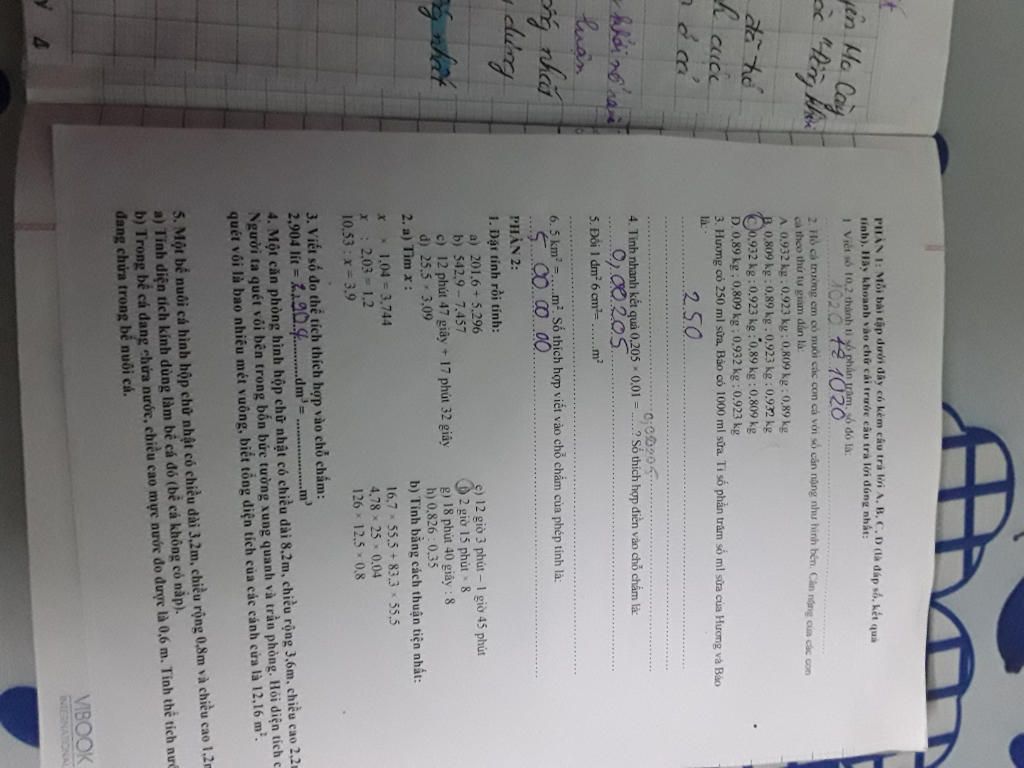 yên Ma Cày
đã thổ
h cười
n ở cả
luận
ống nhất
dừng
nhất
PHẦN 1: Mỗi bài tập dưới đây có kèm câu trả lời A, B, C, D (là đáp số, kết quả
tính). Hãy khoanh vào chữ cái trước câu trả lời đúng nhất:
1. Viết số 10,2 thành tỉ số phần trăm, số đó là:
1020 1020
2. Hồ cá trường em có nuôi các con cá với số cân nặng như hình bên. Cân nặng của các con
cá theo thứ tự giảm dần là:
A. 0,932 kg ; 0,923 kg ; 0,809 kg ; 0,89 kg
B. 0,809 kg ; 0,89 kg ; 0,923 kg ; 0,932 kg
C. 0,932 kg ; 0,923 kg ; 0,89 kg ; 0,809 kg
D. 0,89 kg ; 0,809 kg ; 0,932 kg ; 0,923 kg
3. Hương có 250 ml sữa, Bảo có 1000 ml sữa. Tỉ số phần trăm số ml sữa của Hương và Bảo
là:
250
0,00205
4. Tính nhanh kết quả 0,205 × 0,01 = .....? Số thích hợp điền vào chỗ chấm là:
0,00205
5. Đổi 1 dm² 6 cm² = ...... m²
6. 5 km² = .....m². Số thích hợp viết vào chỗ chấm của phép tính là:
5 00 00 00
PHẦN 2:
1. Đặt tính rồi tính:
a) 201,6 + 5,296
b) 542,9 – 7,457
c) 12 phút 47 giây + 17 phút 32 giây
d) 25,5 × 3,09
e) 12 giờ 3 phút – 1 giờ 45 phút
f) 2 giờ 15 phút × 8
g) 18 phút 40 giây : 8
h) 0,826 : 0,35
2. a) Tìm x :
x × 1,04 = 3,744
x : 2,03 = 1,2
10,53 : x = 3,9
b) Tính bằng cách thuận tiện nhất:
16,7 × 55,5 + 83,3 × 55,5
4,78 × 25 × 0,04
126 × 12,5 × 0,8
3. Viết số đo thể tích thích hợp vào chỗ chấm:
2,904 lít = 2,904 dm³ = ..............m³
4. Một căn phòng hình hộp chữ nhật có chiều dài 8,2m, chiều rộng 3,6m, chiều cao
Người ta quét vôi bên trong bốn bức tường xung quanh và trần phòng. Hỏi diện tích
quét vôi là bao nhiêu mét vuông, biết tổng diện tích của các cánh cửa là 12,16 m².
5. Một bể nuôi cá hình hộp chữ nhật có chiều dài 3,2m, chiều rộng 0,8m và chiều cao
a) Tính diện tích kính dùng làm bể cá đó (bể cá không có nắp).
b) Trong bể cá đang chứa nước, chiều cao mực nước đo được là 0,6 m. Tính thể tích
đang chứa trong bể nuôi cá.
VIBOOK
INTERNATIONAL